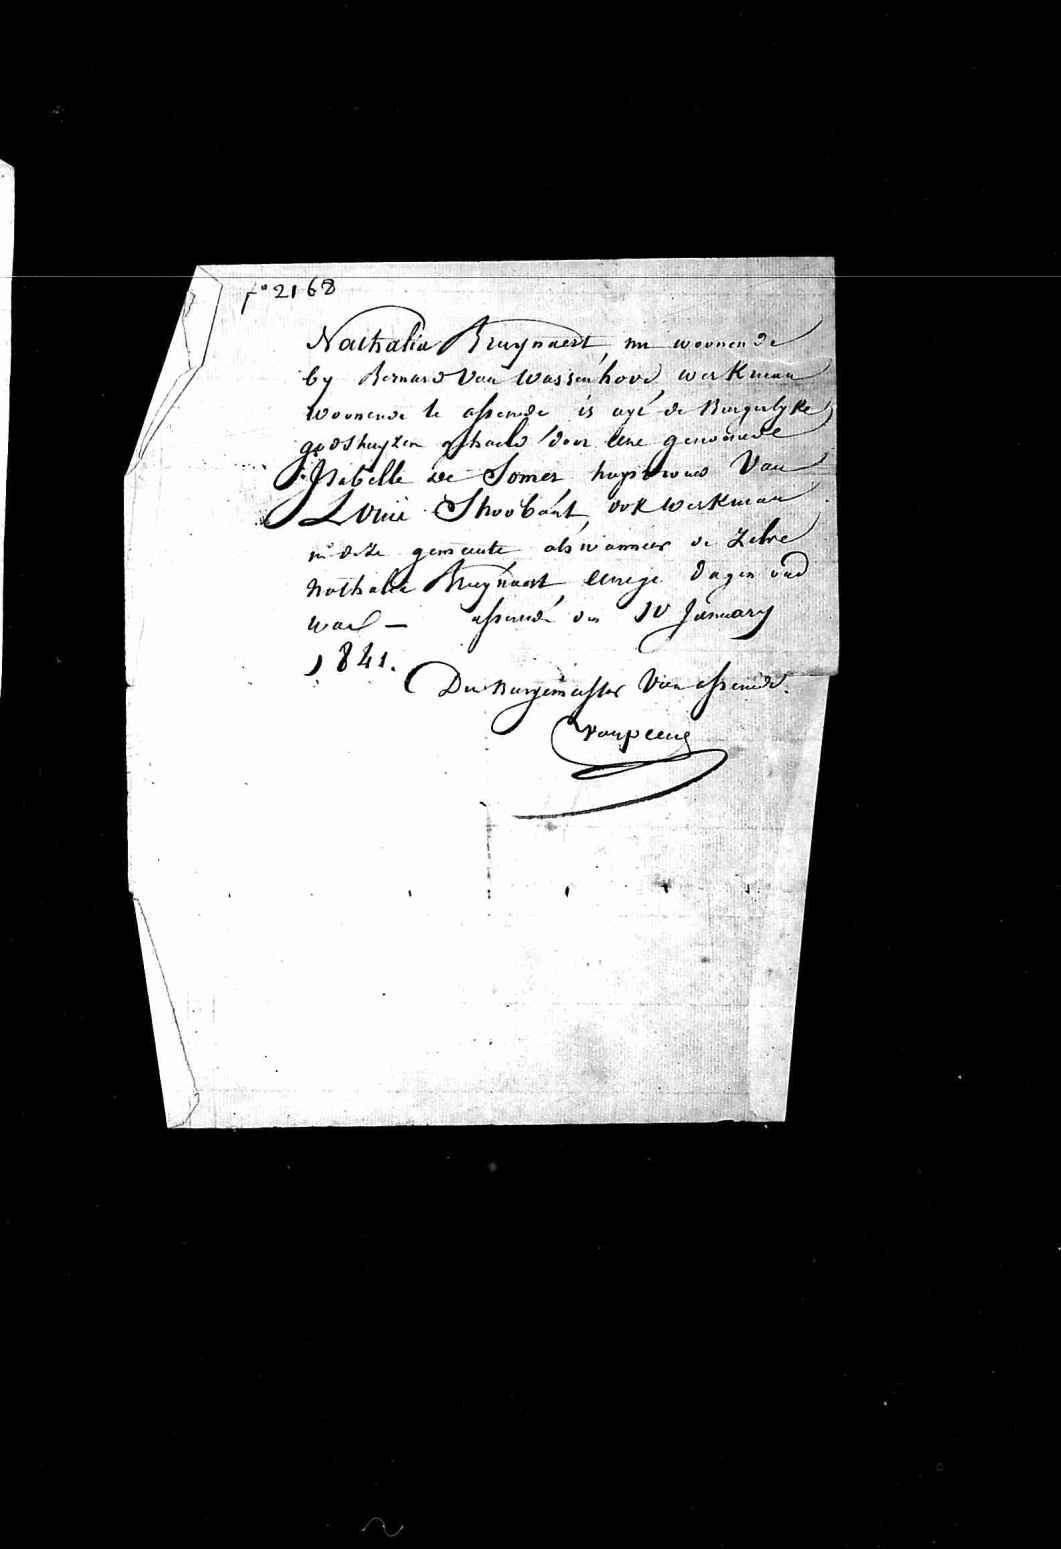 f° 2168
Nathalia Bruynaert, nu woonende
by Bernard Van Wassenhove, werkman
woonende te assenede is uyt de Burgerlyke
godshuyzen gehaeld door eene genoemde
Isabelle De Somer huysvrouw Van
Louis Stroobant, ook werkman
in deze gemeente alswanneer de zelve
Nathalia Bruynaert, eenige dagen oud
was — assenede den 10 January
1841.
Den Burgemeester Van assenede.